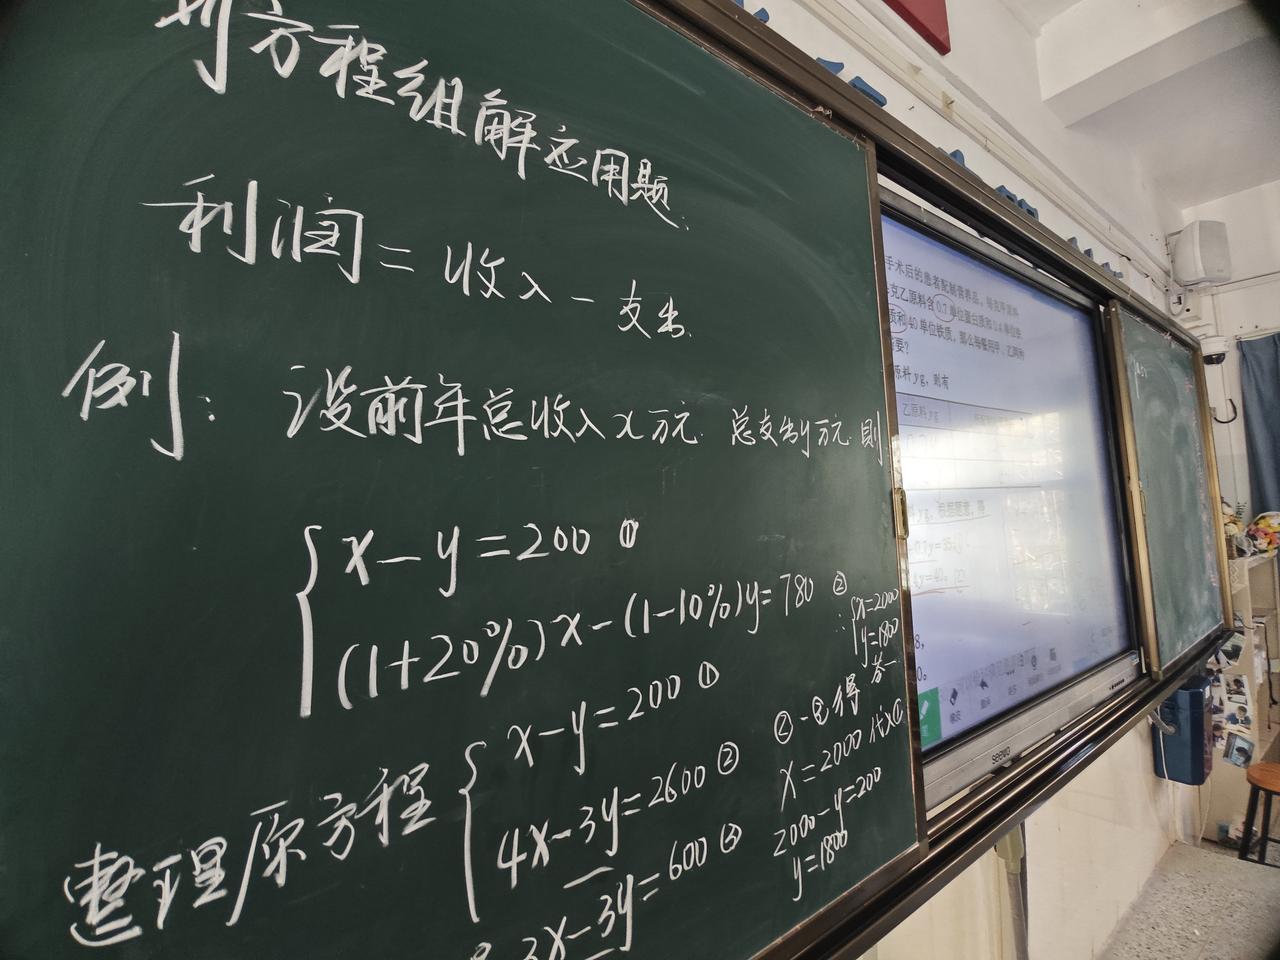 列方程组解应用题.
利润 = 收入 - 支出.
例: 设前年总收入x万元. 总支出y万元. 则
x-y=200 ①
(1+20%)x-(1-10%)y=780 ②
整理原方程
x-y=200 ①
4x-3y=2600 ②
3x-3y=600 ③
②-③得
x=2000 代入①
2000-y=200
y=1800
∴ x=2000
y=1800
答—
手术后的患者配制营养品,每克甲原料
克乙原料含0.7单位蛋白质和0.4单位铁
质和40单位铁质,那么每餐用甲、乙两种
要?
原料yg,则有
乙原料yg
yg,根据题意,得
seewo